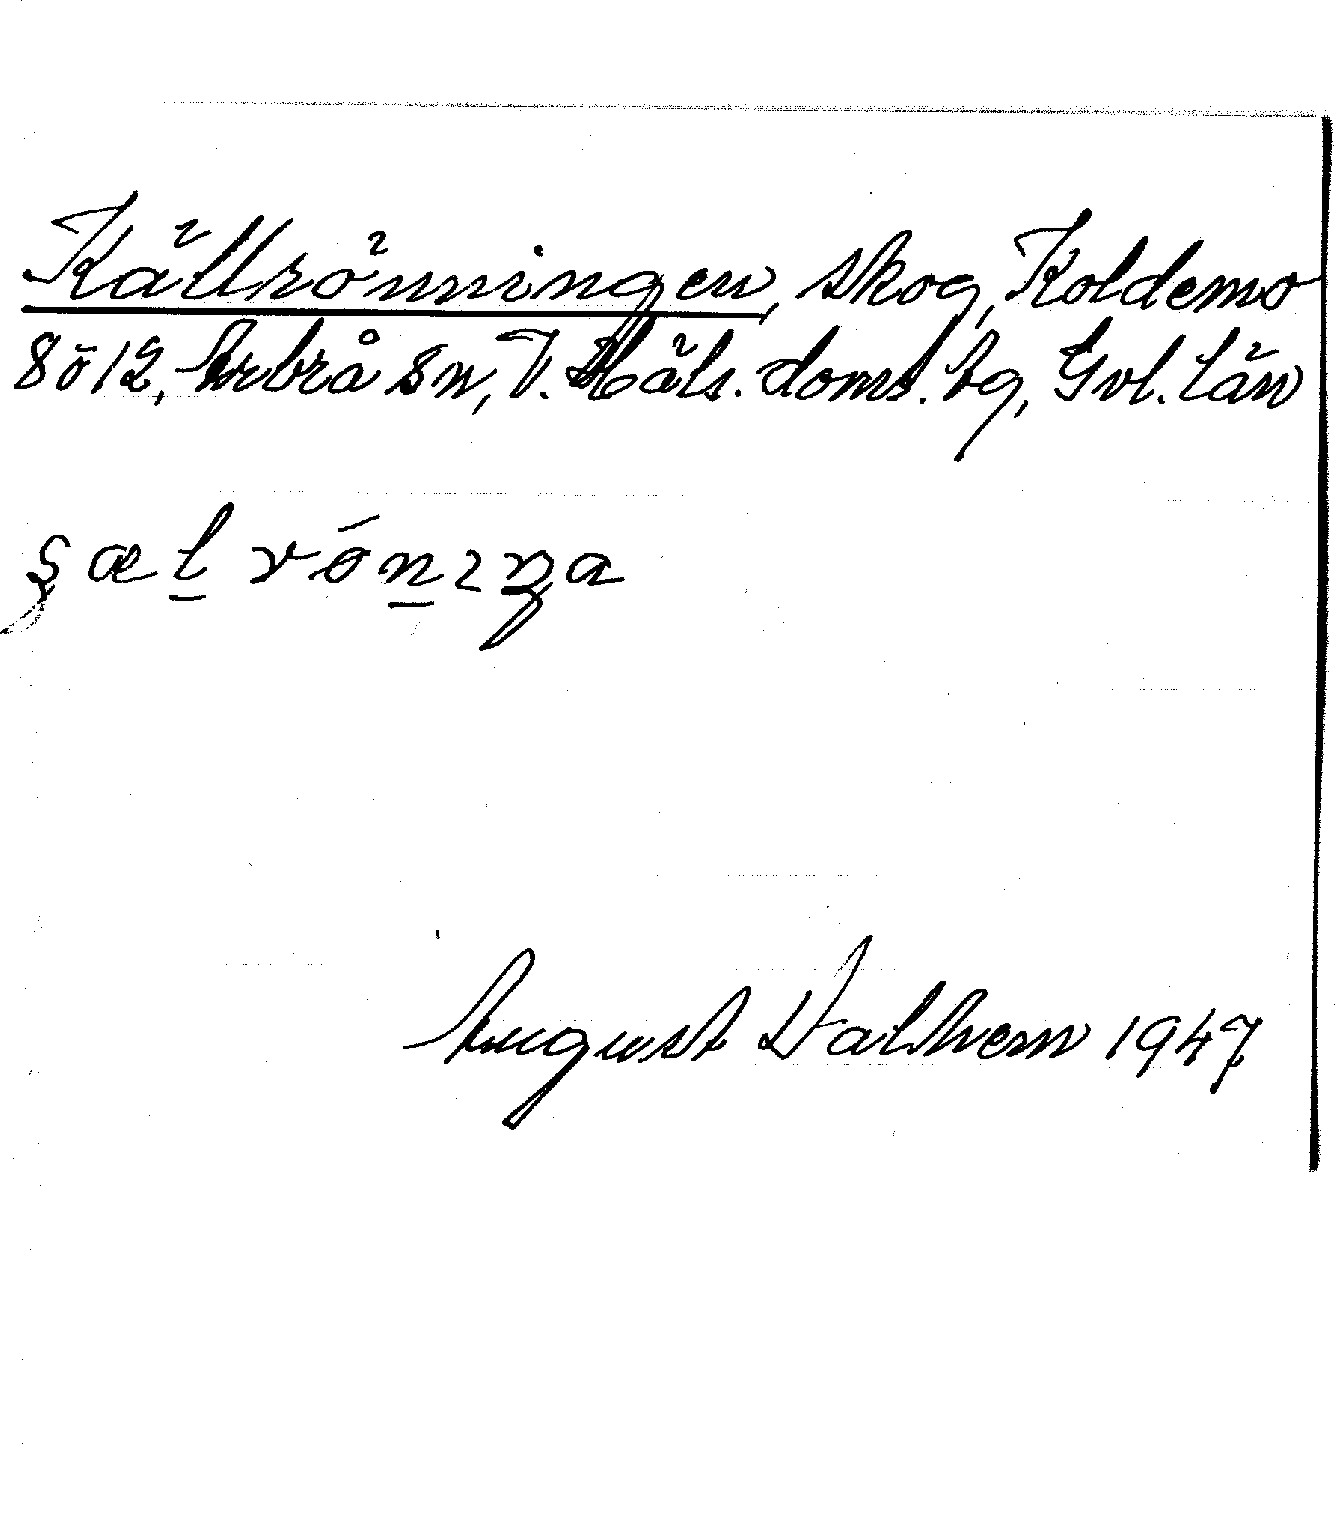 Källrönningen, skog, Koldemo
8 o 12, Arbrå sn, V. Häls. doms. bg, Gvl. län
şæl̲ rón̲ıŋa
August Dalhem 1947